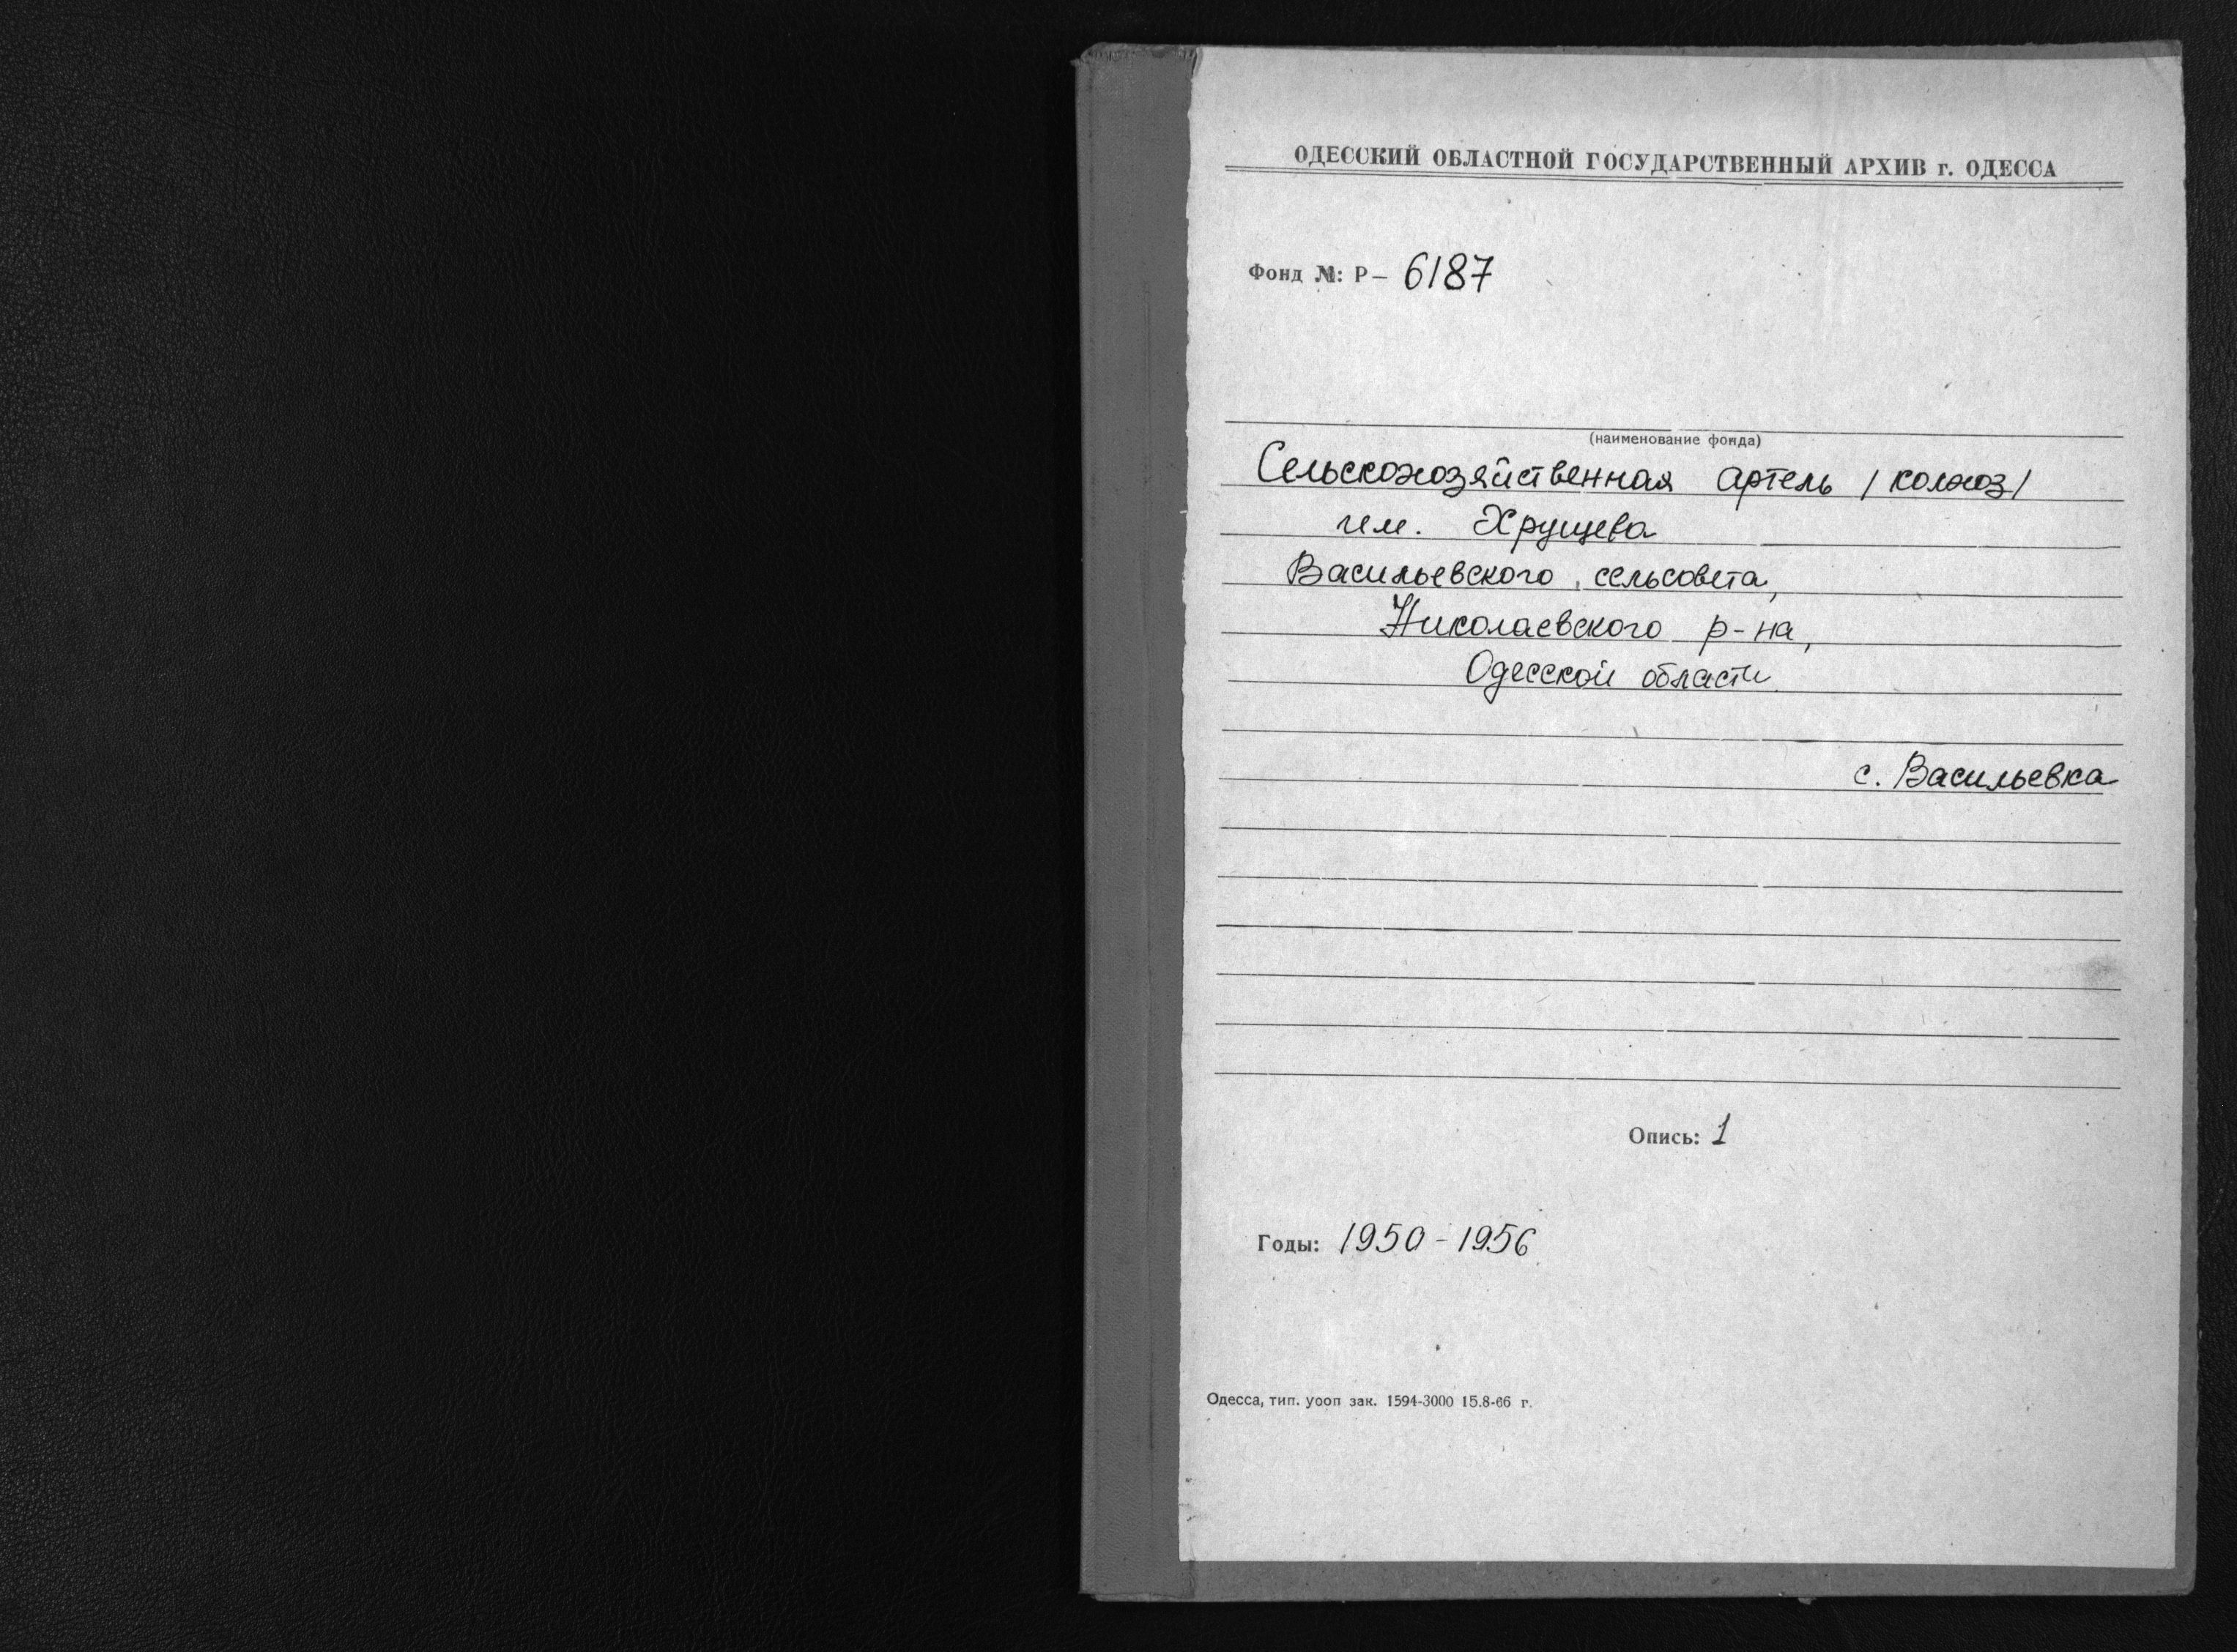 ОДЕССКИЙ ОБЛАСТНОЙ ГОСУДАРСТВЕННЫЙ АРХИВ г. ОДЕССА
Фонд №: Р- 6187
(наименование фонда)
Сельскохозяйственная артель /колхоз/
им. Хрущева
Васильевского сельсовета,
Николаевского р-на,
Одесской области
с. Васильевка
Опись: 1
Годы: 1950-1956
Одесса, тип. уооп зак. 1594-3000 15.8-66 г.